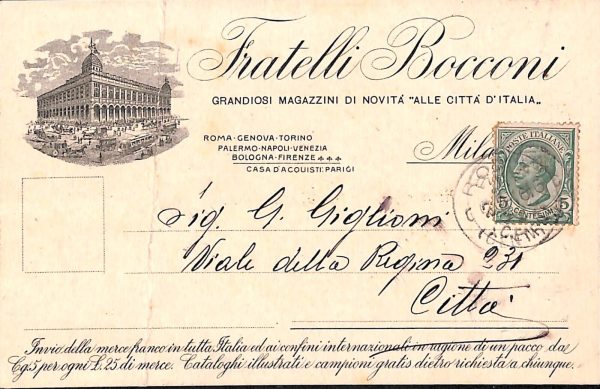 Fratelli Bocconi
GRANDIOSI MAGAZZINI DI NOVITA' "ALLE CITTÀ D'ITALIA„
ROMA-GENOVA-TORINO
PALERMO-NAPOLI-VENEZIA
BOLOGNA-FIRENZE
CASA D'ACQUISTI: PARIGI
Mila
POSTE ITALIANE
5 CENTESIMI 5
Sig. G. Giglioni
Viale della Regina 231
Città
Invio della merce franco in tutta Italia ed ai confini internazionali in ragione di un pacco da
Cg. 5 per ogni L. 25 di merce. Cataloghi illustrati e campioni gratis dietro richiesta a chiunque.